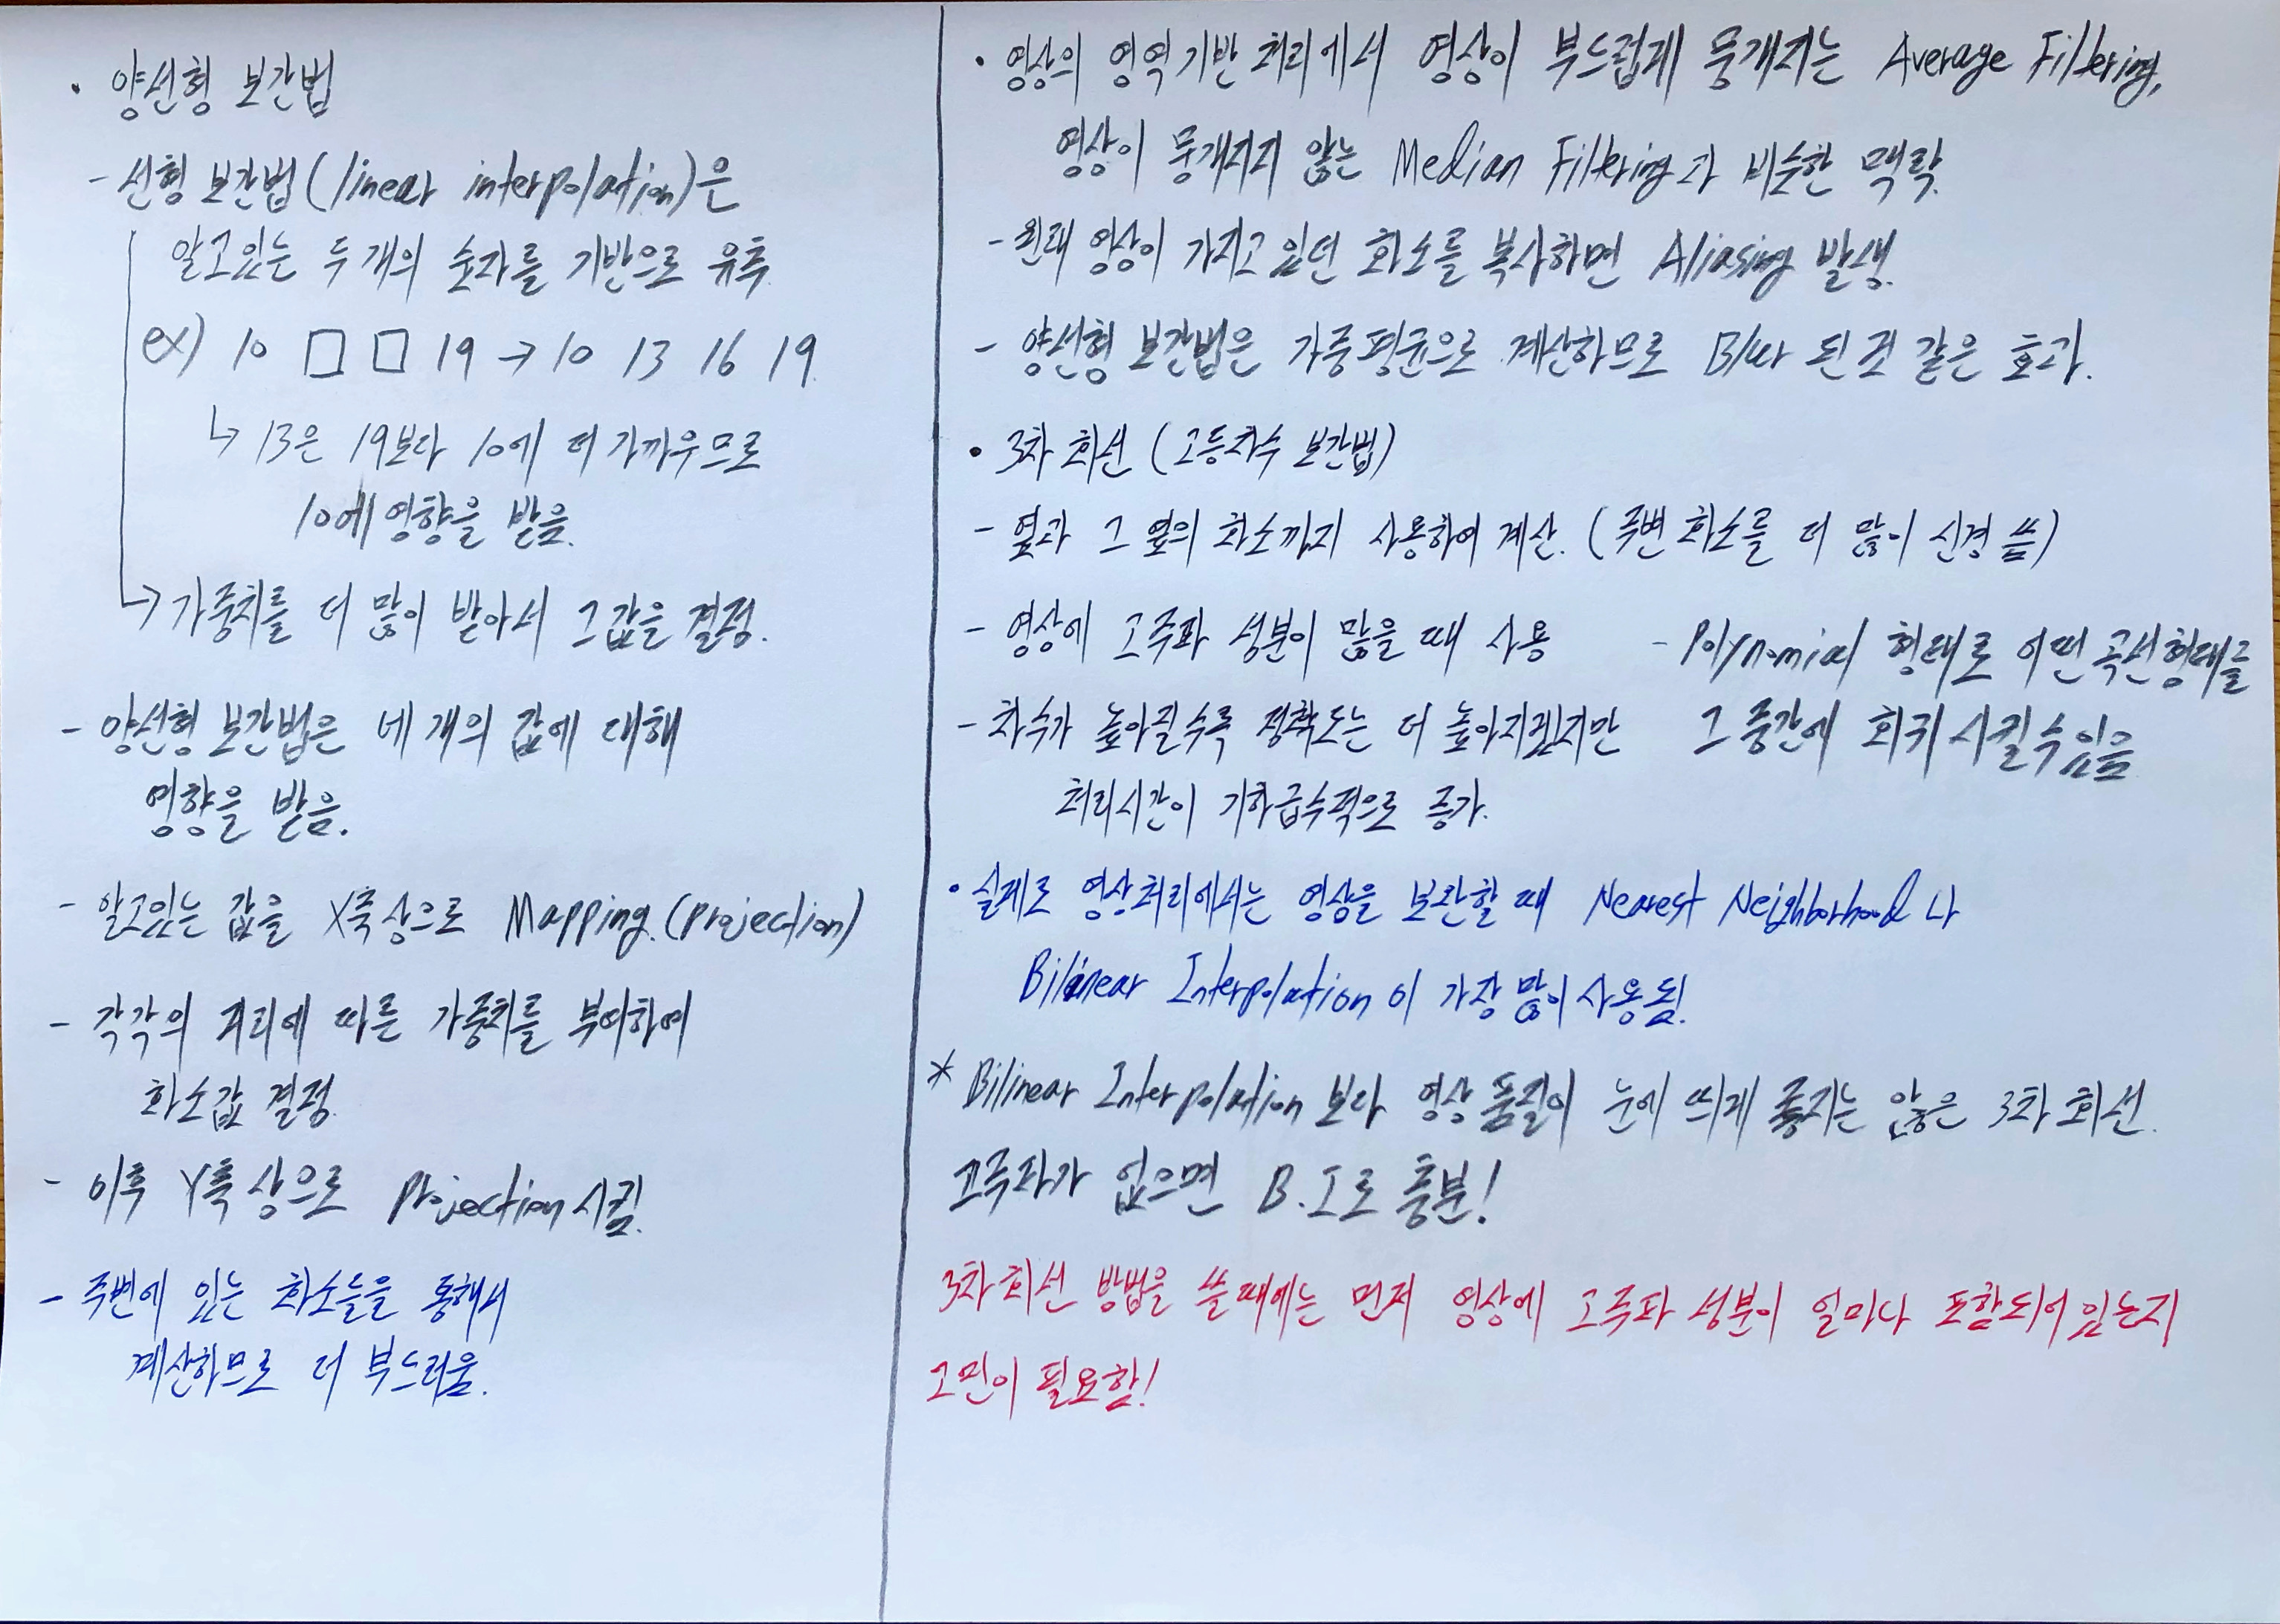 • 양선형 보간법
- 선형 보간법(linear interpolation)은
알고있는 두 개의 숫자를 기반으로 유추
ex) 10 □ □ 19 → 10 13 16 19.
↳ 13은 19보다 10에 더 가까우므로
10에 영향을 받음.
→ 가중치를 더 많이 받아서 그 값을 결정.
- 양선형 보간법은 네 개의 값에 대해
영향을 받음.
- 알고있는 값을 X축 상으로 Mapping.(projection)
- 각각의 거리에 따른 가중치를 부여하여
화소값 결정.
- 이후 Y축 상으로 projection시킴.
- 주변에 있는 화소들을 통해서
계산하므로 더 부드러움.
• 영상의 영역기반 처리에서 영상이 부드럽게 뭉개지는 Average Filtering,
영상이 뭉개지지 않는 Median Filtering과 비슷한 맥락.
- 원래 영상이 가지고 있던 화소를 복사하면 Aliasing 발생.
- 양선형 보간법은 가중평균으로 계산하므로 Blur 된 것 같은 효과.
• 3차 회선 (고등차수 보간법)
- 옆과 그 옆의 화소까지 사용하여 계산. (주변 화소를 더 많이 신경 씀)
- 영상에 고주파 성분이 많을 때 사용
- 차수가 높아질수록 정확도는 더 높아지겠지만
처리시간이 기하급수적으로 증가.
- Polynomial 형태로 어떤 곡선형태를
그 중간에 회귀 시킬 수 있음
• 실제로 영상처리에서는 영상을 보간할 때 Nearest Neighborhood 나
Bilinear Interpolation 이 가장 많이 사용됨.
* Bilinear Interpolation 보다 영상 품질이 눈에 띄게 좋지는 않은 3차 회선.
고주파가 없으면 B.I로 충분!
3차 회선 방법을 쓸 때에는 먼저 영상에 고주파 성분이 얼마나 포함되어 있는지
고민이 필요함!